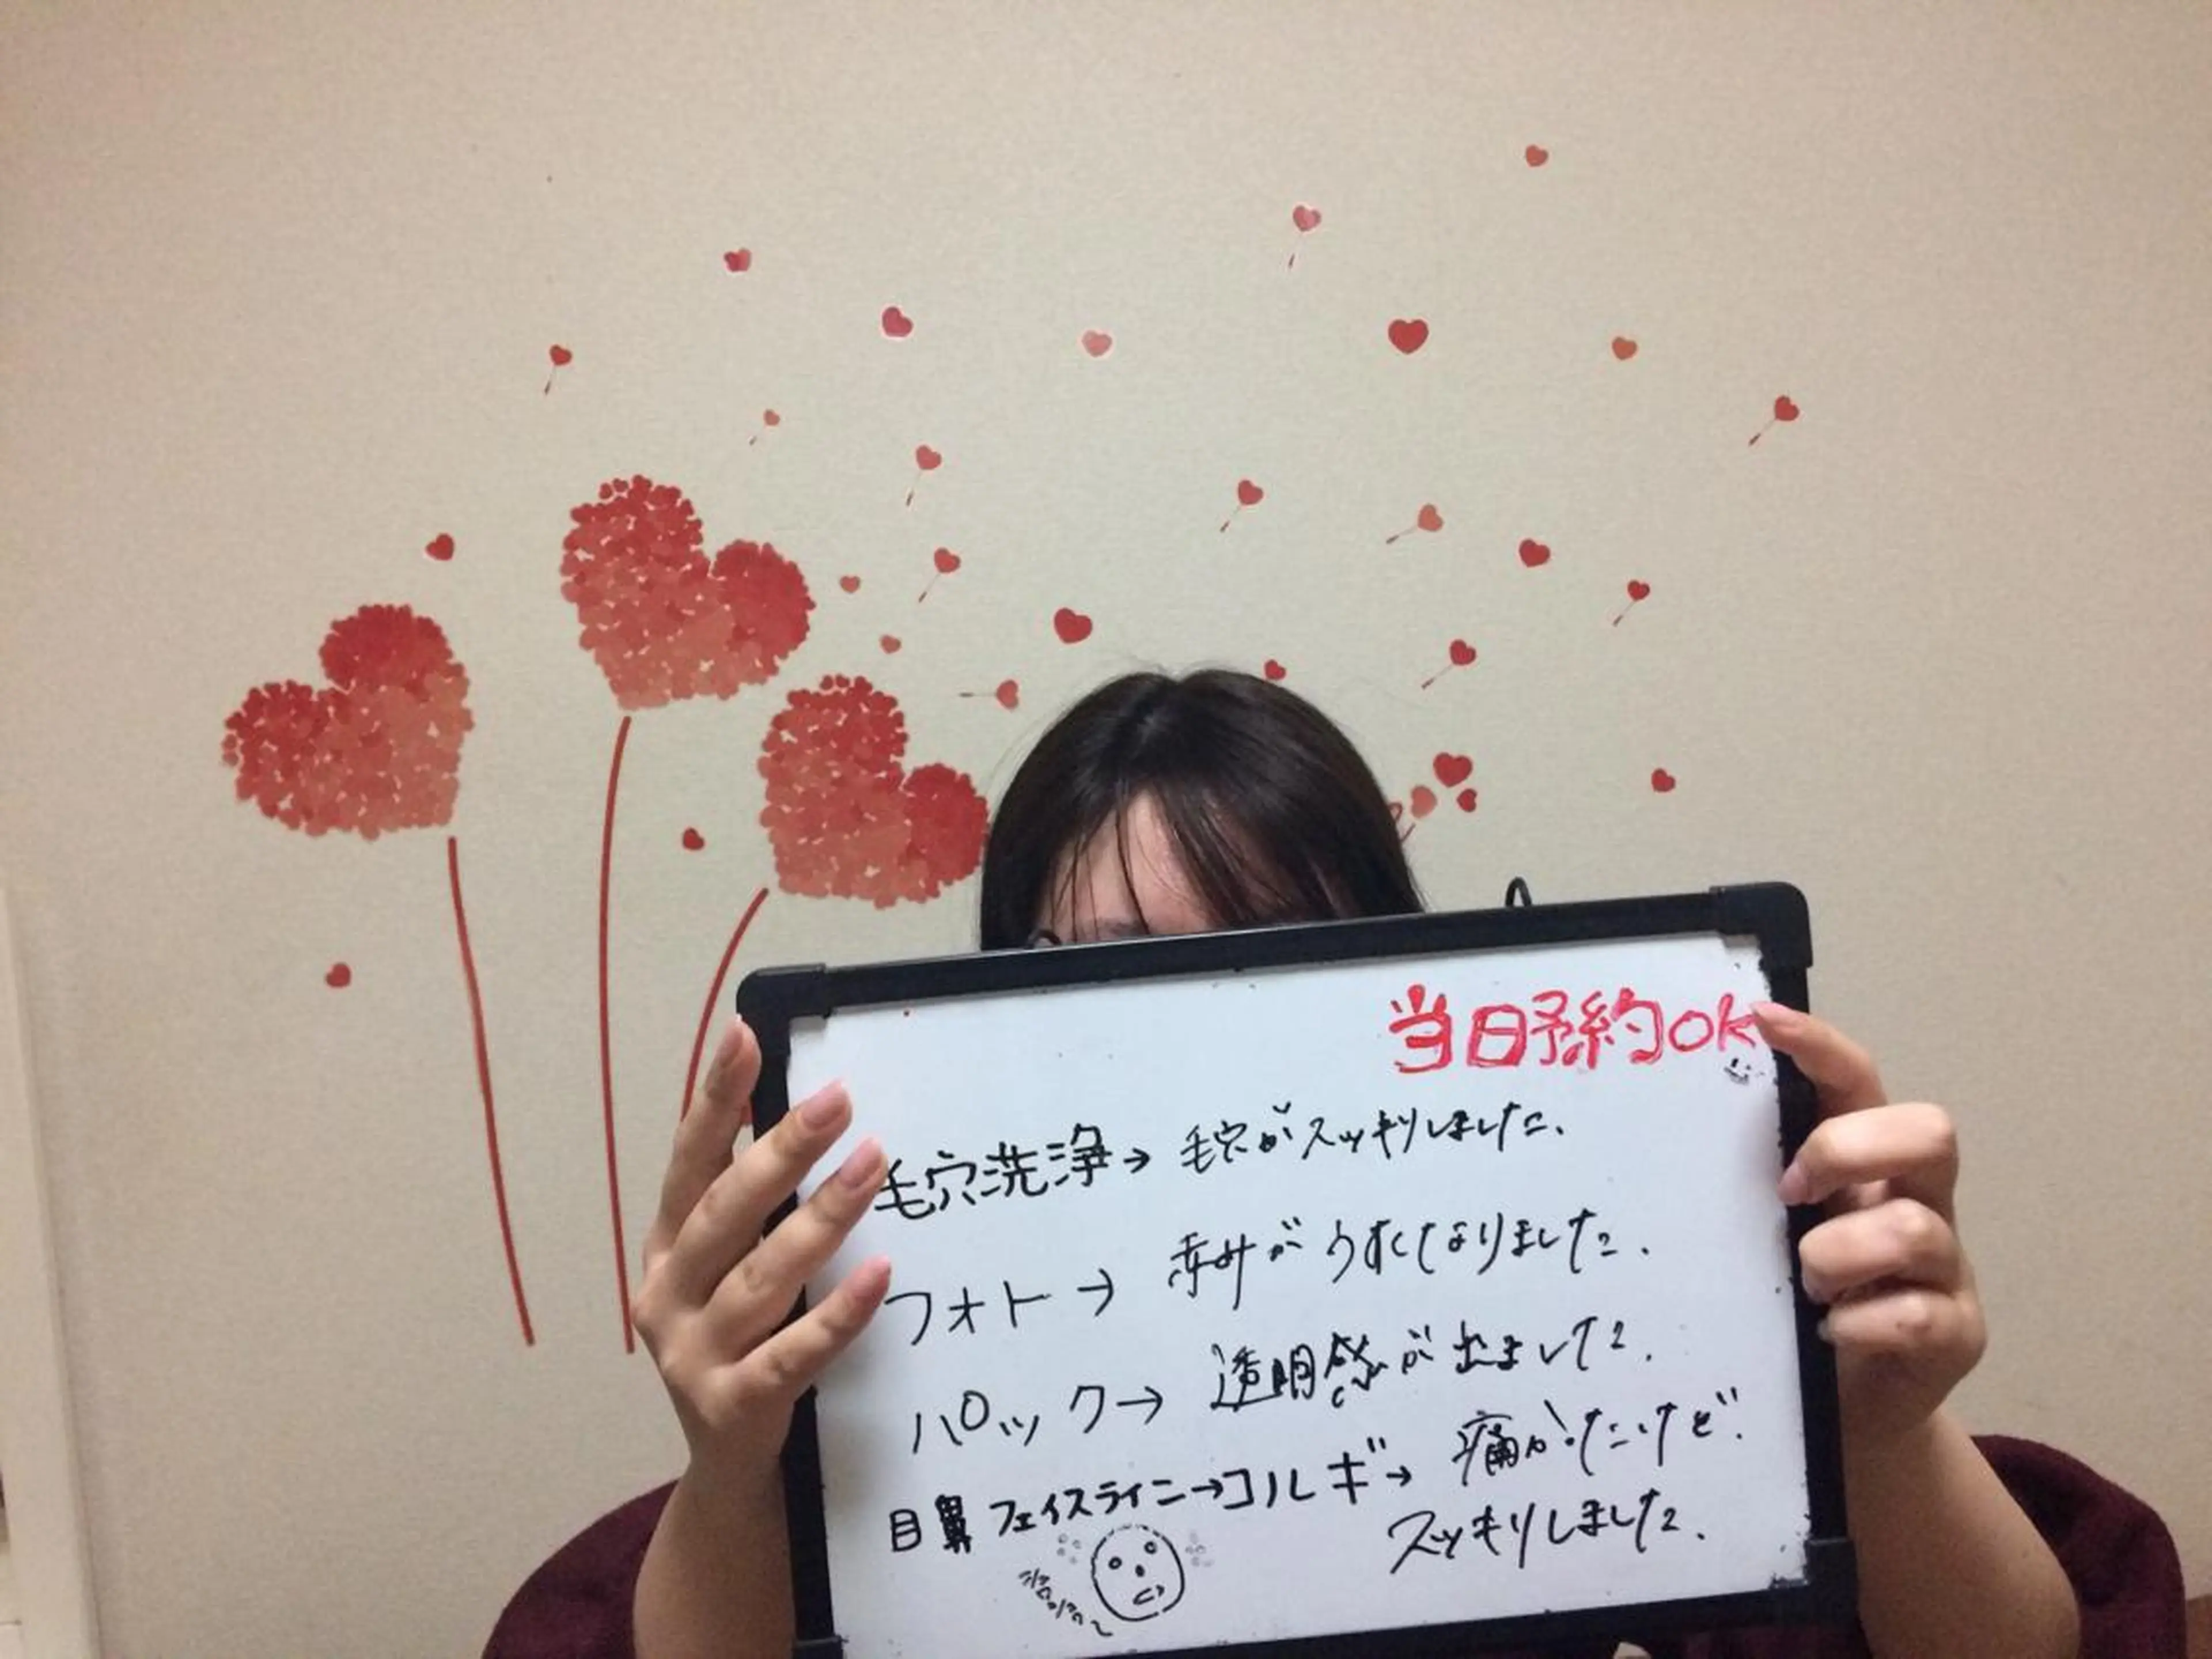 当日予約OK
毛穴洗浄→毛穴がスッキリしました.
フォト→赤みがうすくなりました.
パック→透明感が出ました.
目鼻フェイスライン→コルギ→痛かったけど.
スッキリしました.